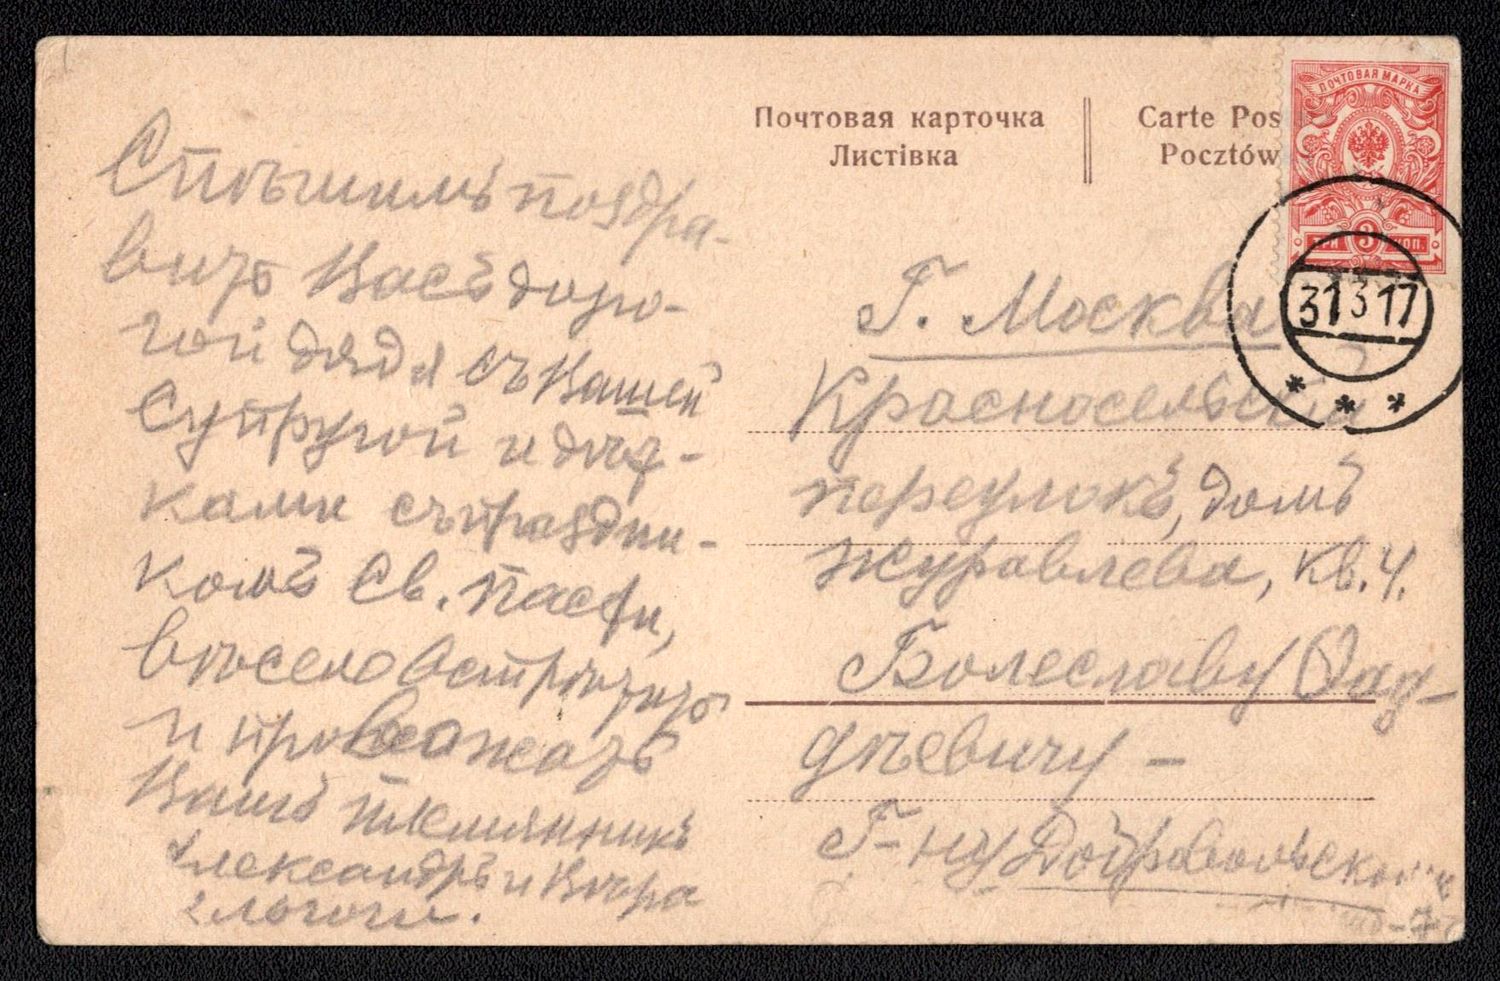 Почтовая карточка
Листівка
Carte Pos
Pocztów
ПОЧТОВАЯ МАРКА
ТРИ 3 КОП.
31 3 17
Спѣшимъ поздра-
вить Васъ доро-
гой дядя съ Вашей
Супругой и дѣт-
ками съ праздни-
комъ Св. Пасхи,
весело встрѣтить
и провожать
Вашъ племянникъ
Александръ и Вѣра
Г. Москва
Красносельскій
переулокъ, домъ
Журавлева, кв. 4.
Болеславу Фад-
дѣевичу -
Г-ну